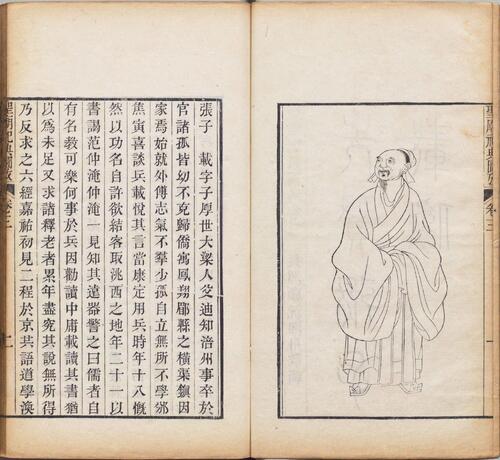 聖廟祀典圖攷 卷三 一
張子 載字子厚世大梁人父迪知涪州事卒於
官諸孤皆幼不克歸僑寓鳳翔郿縣之橫渠鎮因
家焉始就外傅志氣不羣少孤自立無所不學邠
焦寅喜談兵載悅其言當康定用兵時年十八慨
然以功名自許欲結客取洮西之地年二十一以
書謁范仲淹仲淹一見知其遠器警之曰儒者自
有名教可樂何事於兵因勸讀中庸載讀其書猶
以爲未足又求諸釋老者累年盡究其說無所得
乃反求之六經嘉祐初見二程於京共語道學渙